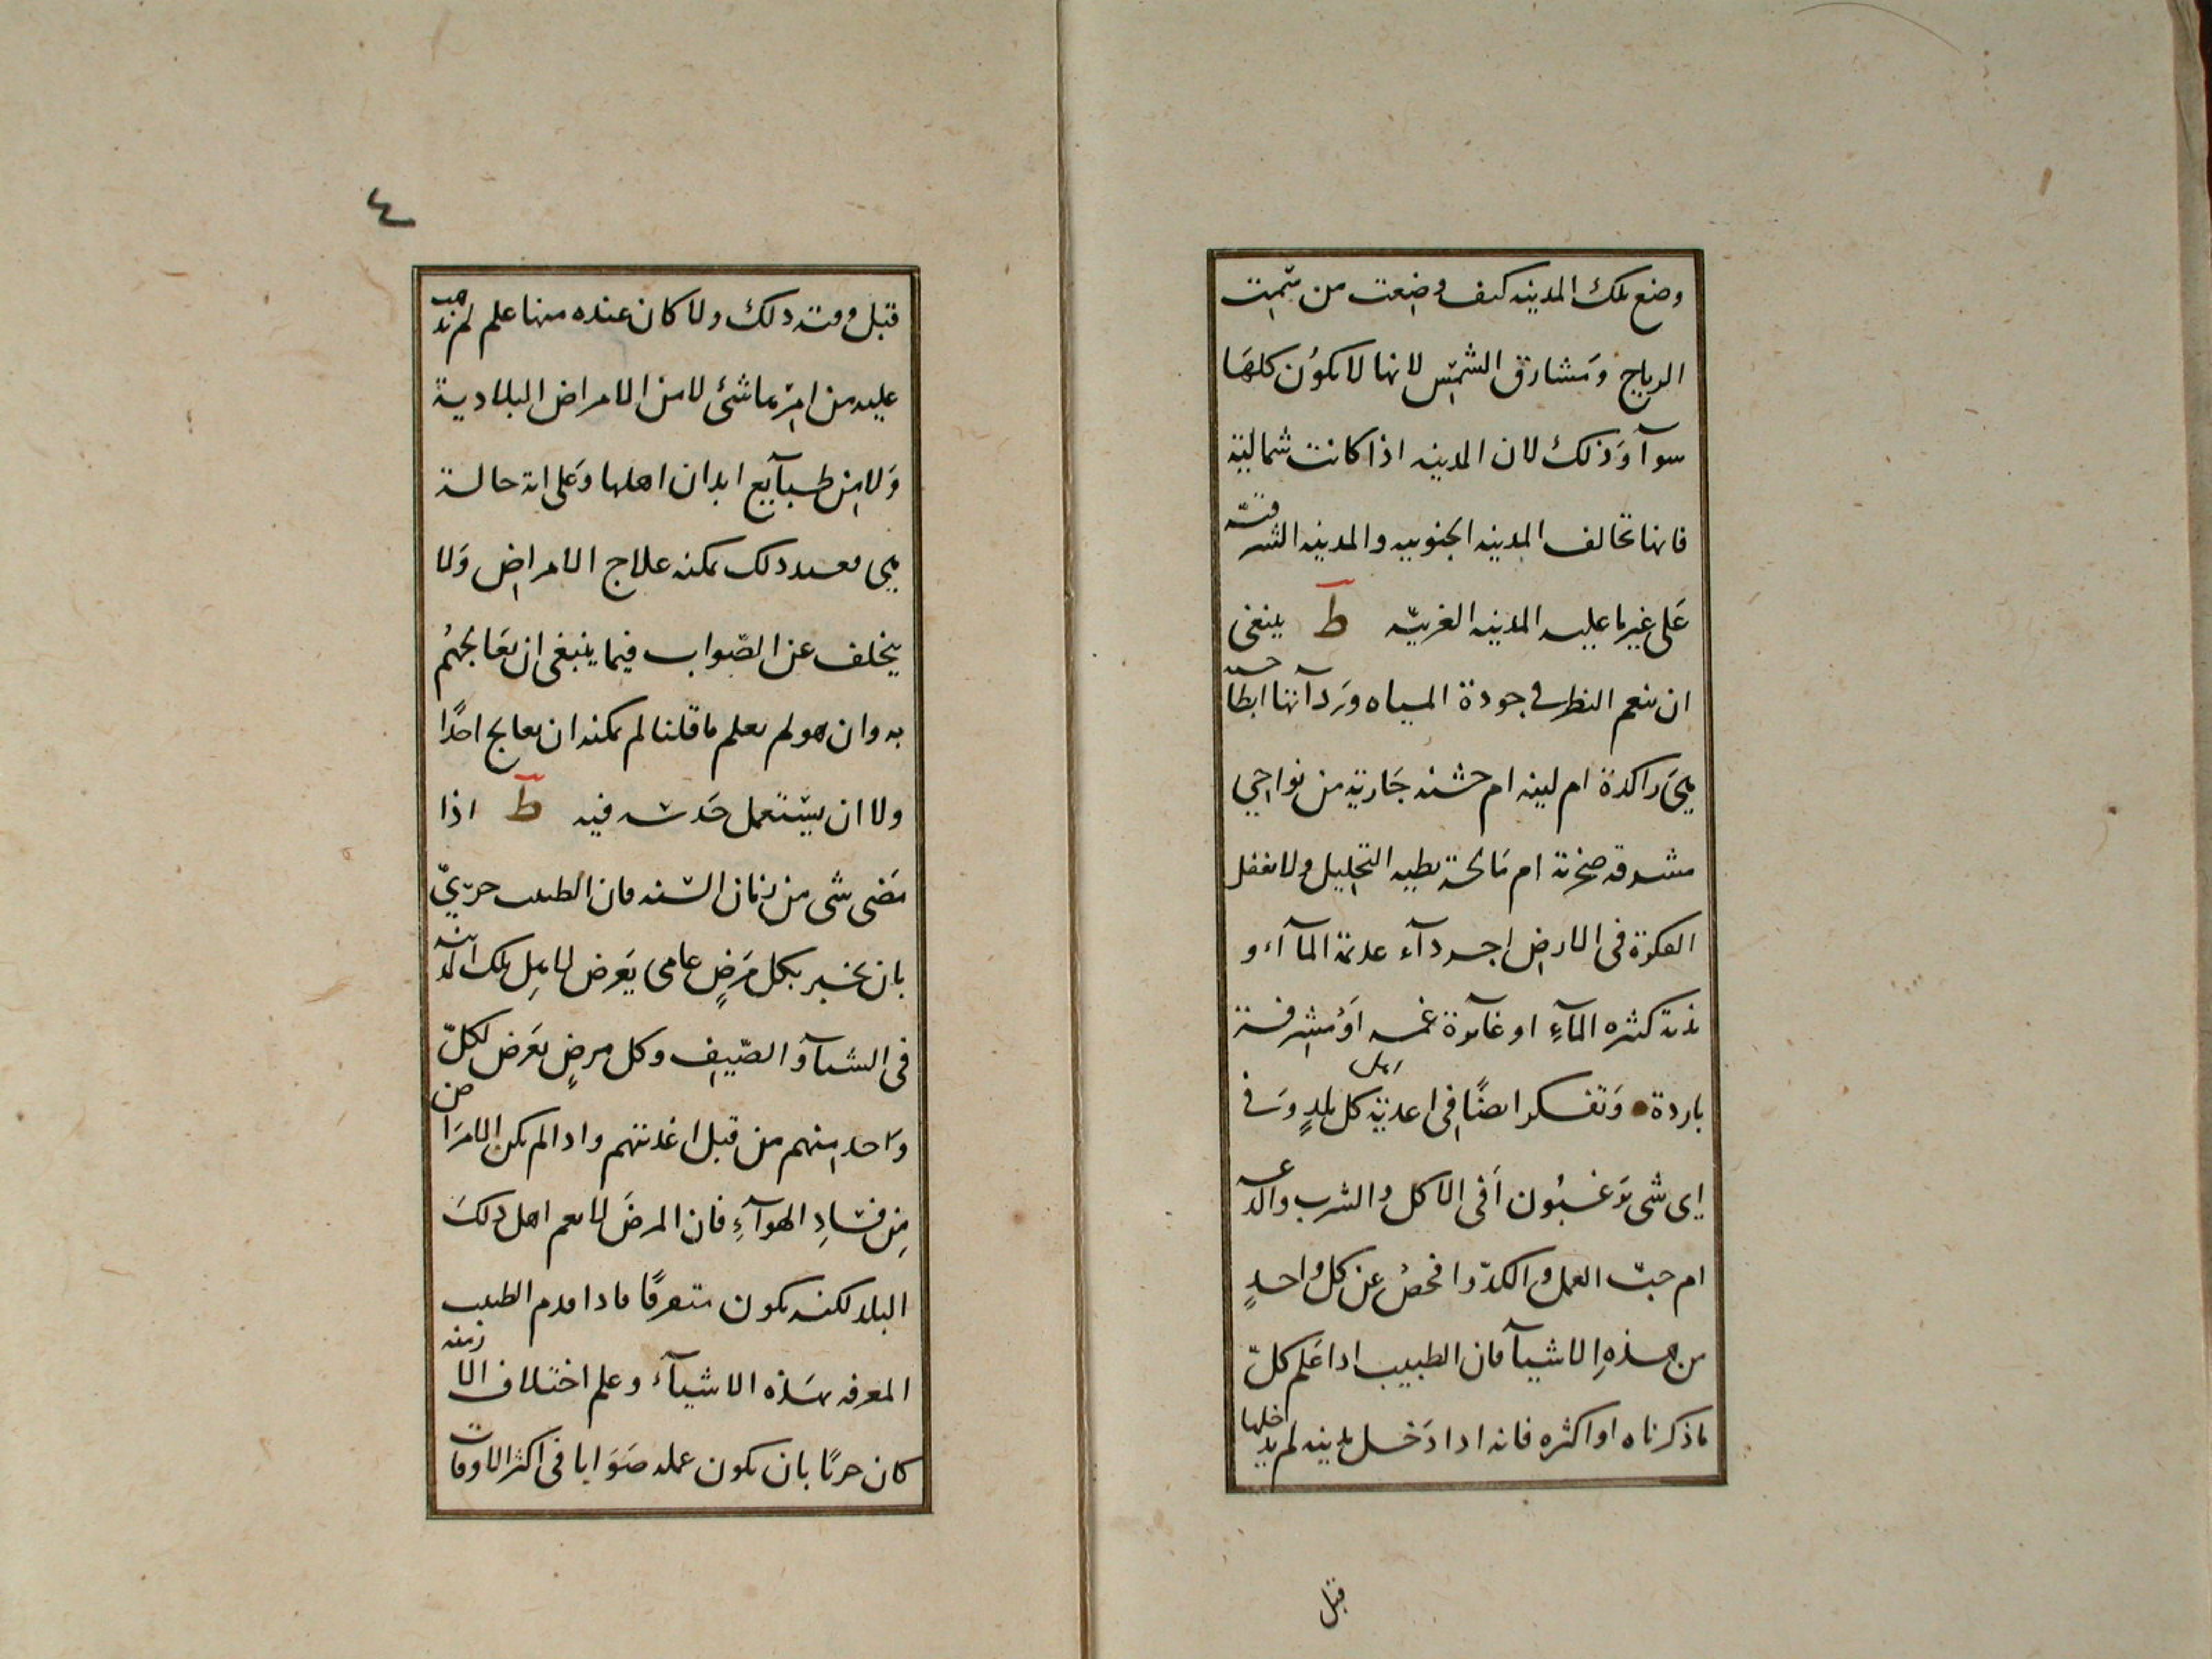 وضع تلك المدينه كيف وضعت من سمت
الرياح ومشارق الشمس لانها لا يكون كلها
سوآ وذلك لان المدينه اذا كانت شمالية
فانها تخالف المدينه الجنوبيه والمدينه الشرقية
على غير ما عليه المدينه الغربيه ط ينبغى
ان ينعم النظر فى جودة المياه وردآتها ابطايحية
هى راكدة ام لينه ام خشنه جارية من نواحي
مشرقه صخرية ام مالحة بطيه التحليل ولا تغفل
الفكرة فى الارض اجردآء عديمة المآء او
ندية كثيره المآء او غآئرة غمه او مشرفة
باردة وتفكر ايضًا فى اغذية اهل كل بلدٍ وفى
اى شى يرغبون افى الاكل والشرب والدعة
ام حب العمل والكد وافحص عن كل واحدٍ
من هذه الاشيآ فان الطبيب اذا علم كل
ما ذكرناه او اكثره فانه اذا دخل مدينه لم يدخلها
قبل
٤
قبل وقته ذلك ولا كان عنده منها علم لم يذهب
عليه من امرها شئ لا من الامراض البلادية
ولا من طبآيع ابدان اهلها وعلى اية حالة
هى فعند ذلك يمكنه علاج الامراض ولا
يخلف عن الصواب فيما ينبغى ان يعالجهم
به وان هو لم يعلم ما قلنا لم يمكنه ان يعالج احدًا
ولا ان يستعمل حدسه فيه ط اذا
مضى شى من زمان السنه فان الطبيب حرىّ
بان يخبر بكل مرضٍ عامى يعرض لاهل تلك المدينه
فى الشتآ والصيف وكل مرضٍ يعرض لكلّ
واحد منهم من قبل اغذيتهم واذا لم يكن الامراض
من فساد الهوآءِ فان المرض لا يعم اهل ذلك
البلد لكنه يكون متفرقًا فاذا قدم الطبيب
المعرفه بهذه الاشيآء وعلم اختلاف الازمنه
كان حريًا بان يكون عمله صوابا فى اكثر الاوقات